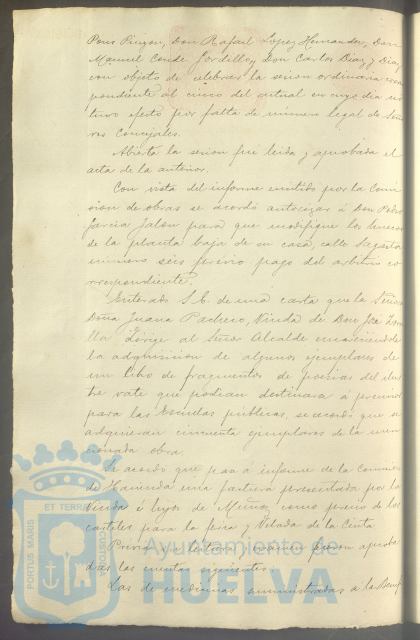 Pons Pinzon, Don Rafael Lopez Hernandez, Don
Manuel Conde Jordillo y Don Carlos Diaz y Diaz,
con objeto de celebrar la sesion ordinaria corres
pondiente al cinco del actual en cuyo dia no
tuvo efecto por falta de numero legal de Seño
res Concejales.
Abierta la sesion fué leida y aprobada el
acta de la anterior.
Con vista del informe emitido por la Comi
sion de obras se acordó autorizar á Don Pedro
Garcia Jalon para que modifique los huecos
de la planta baja de su casa, calle Sagasta
numero seis previo pago del arbitrio co
rrespondiente.
Enterado S.E. de una carta que la Señora
Doña Juana Pacheco, Viuda de Don José Zorri
lla dirige al Señor Alcalde
la adquisicion de algunos ejemplares de
un libro de fragmentos de poesias del ilus
tre vate que podian destinarse á premios
para las Escuelas publicas, se acordó que se
adquieran cincuenta ejemplares de la men
cionada obra.
Se acordó que pase á informe de la Comision
de Hacienda una factura presentada por la
Viuda é hijos de Muñoz como precio de los
carteles para la feria y Velada de la Cinta.
Previa su lectura y examen fueron aproba
das las cuentas siguientes.
Las de medicinas suministradas á la Benef
PORTUS MARIS ET TERRAE CUSTODIA
Ayuntamiento de
HUELVA